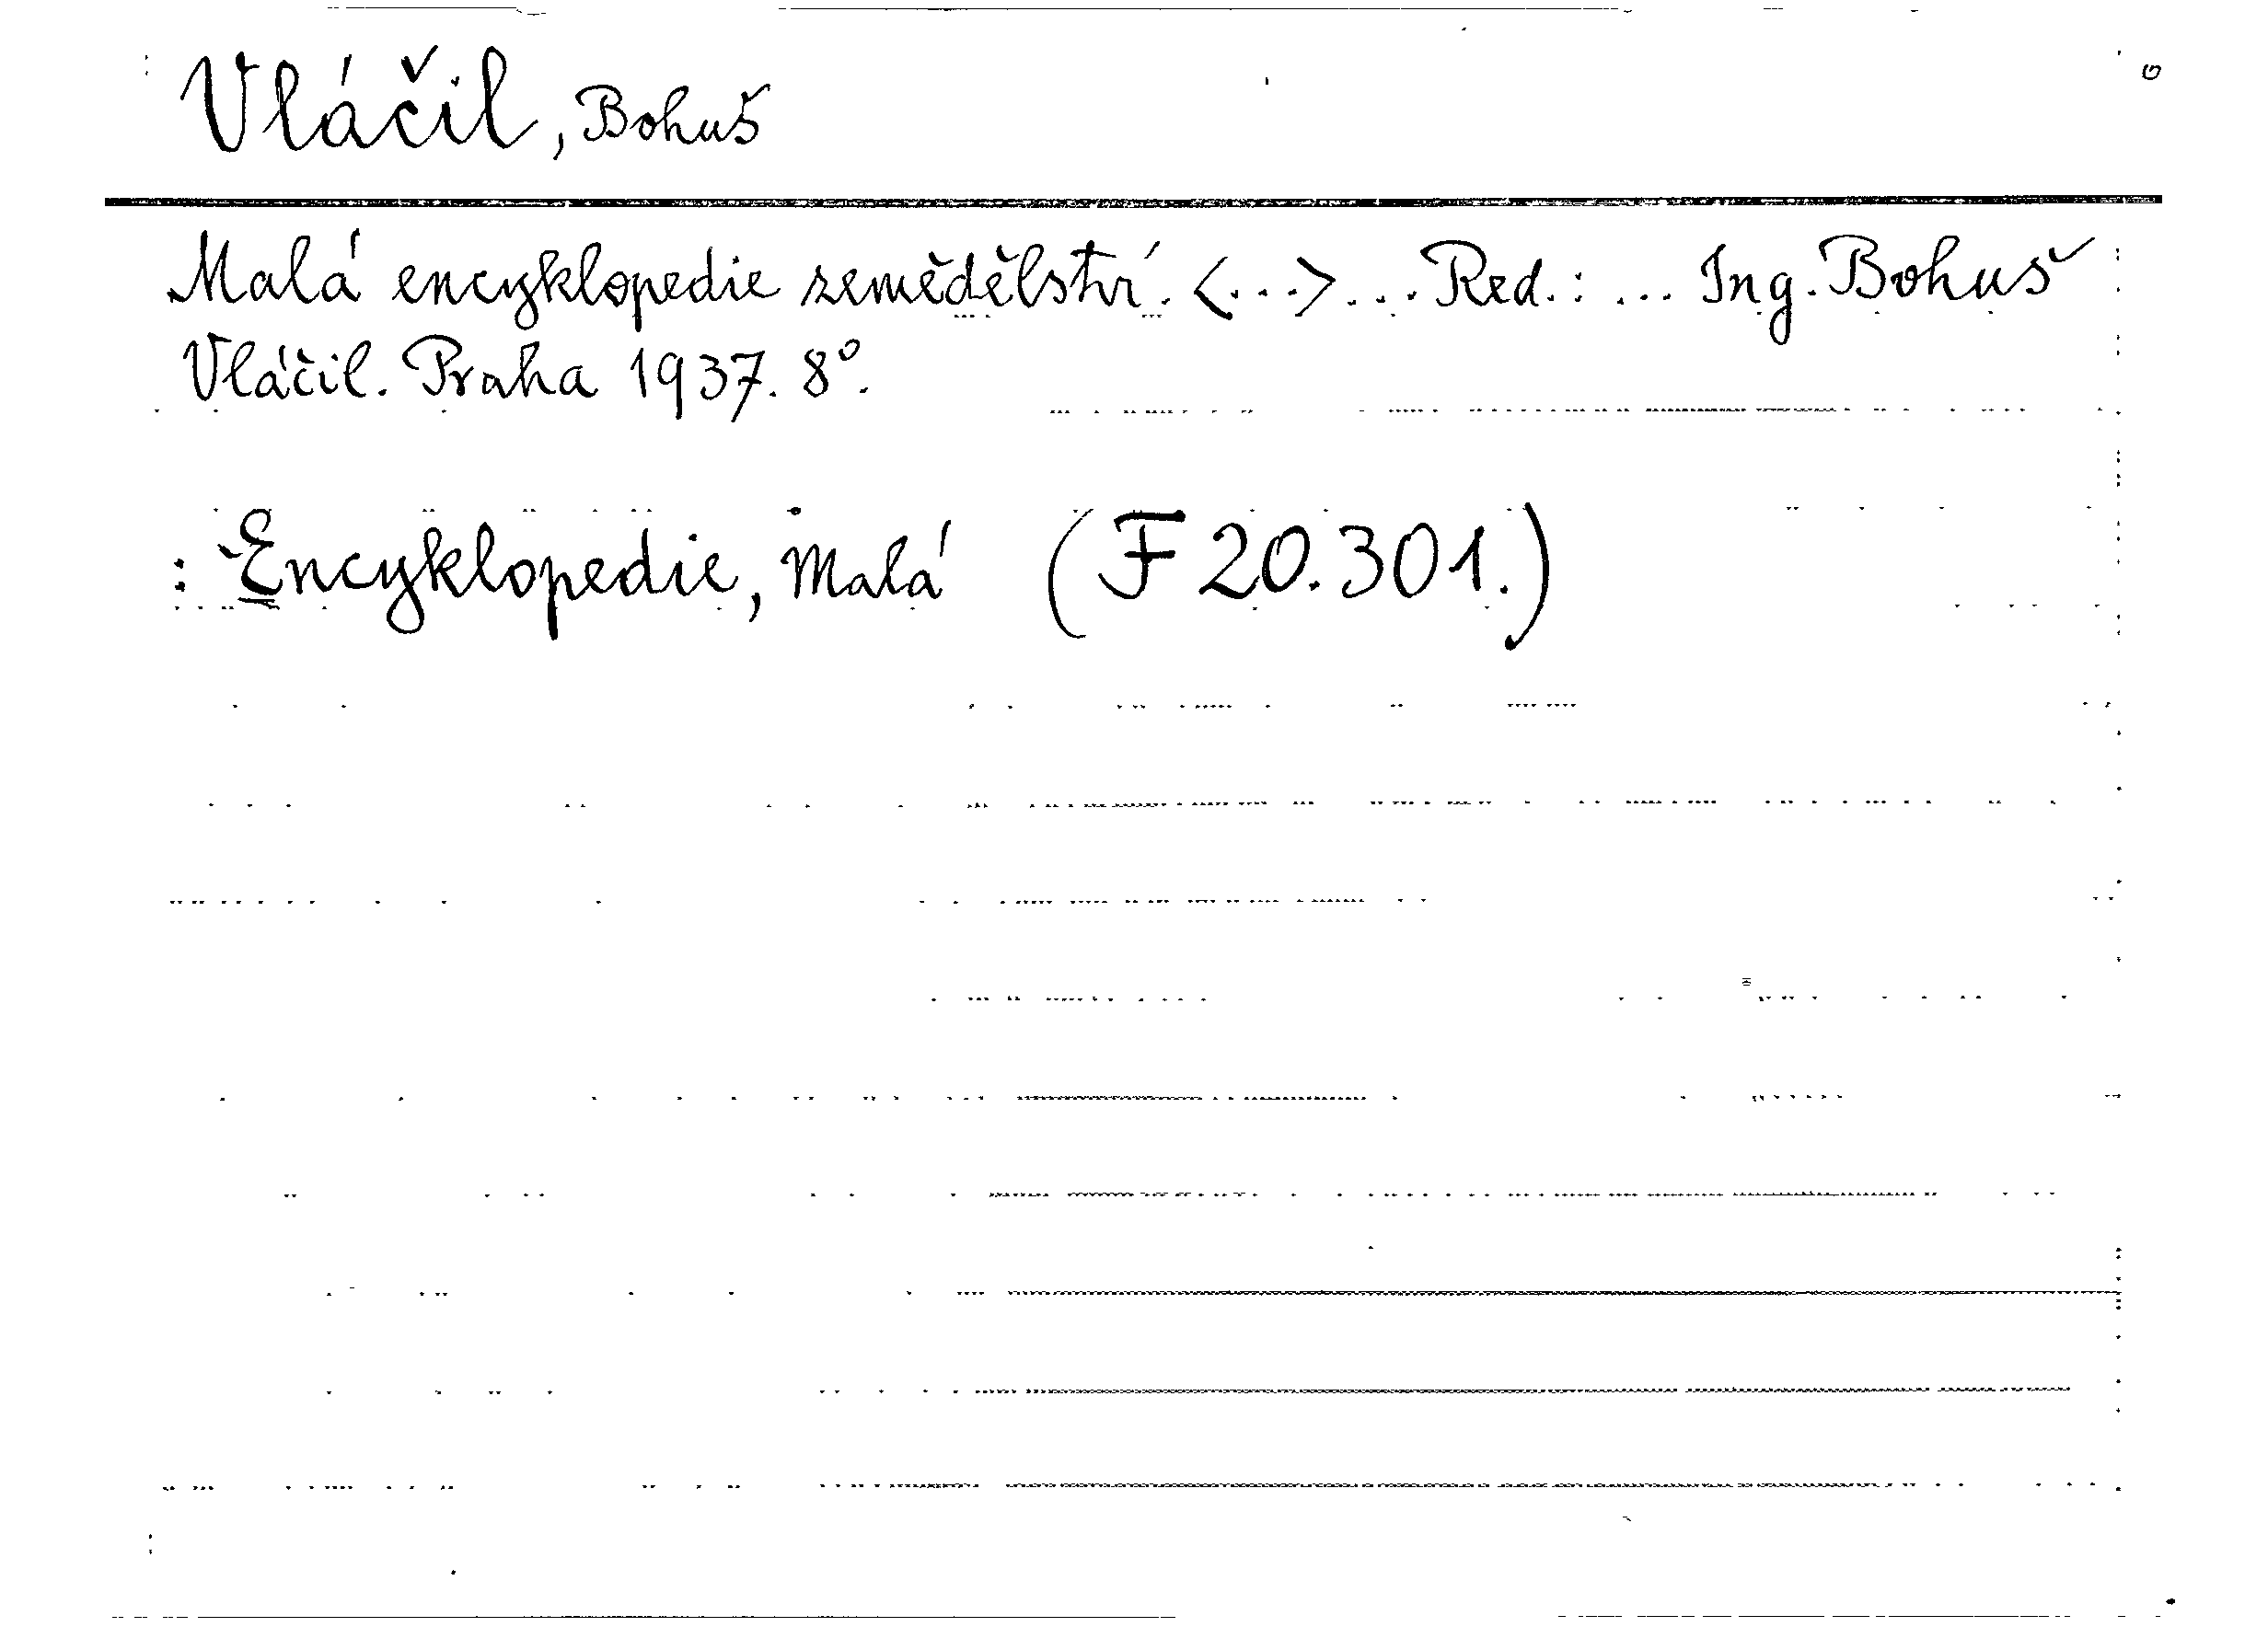 Vláčil, Bohuš
Malá encyklopedie zemědělství. <...>... Red.: ... Ing. Bohuš
Vláčil. Praha 1937. 8°.
: Encyklopedie, Malá (F 20.301.)